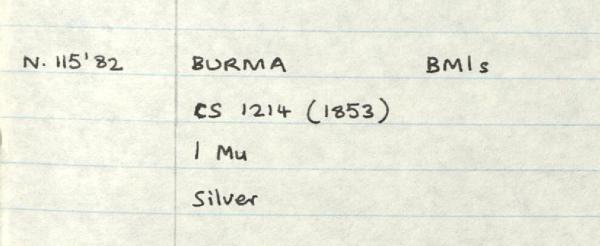 N. 115'82 BURMA BM1s
CS 1214 (1853)
1 Mu
Silver